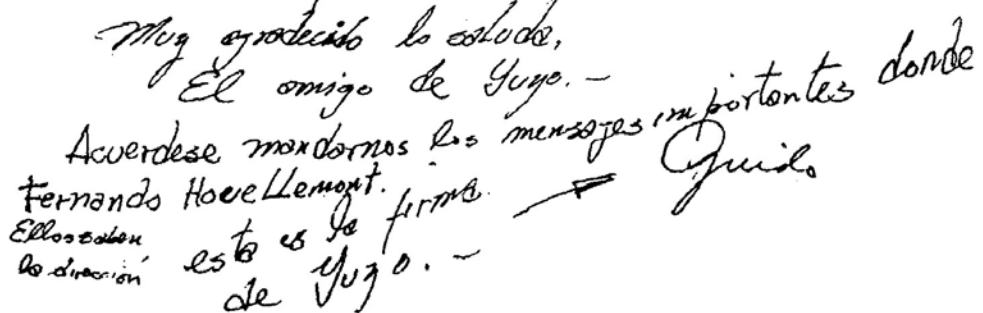 Muy agradecido lo saluda,
El amigo de Yuyo.-
Acuerdese mandarnos los mensajes importantes donde
Fernando Hovellemont.
Ellos saben
la dirección
esta es la firma → Guido
de Yuyo.-